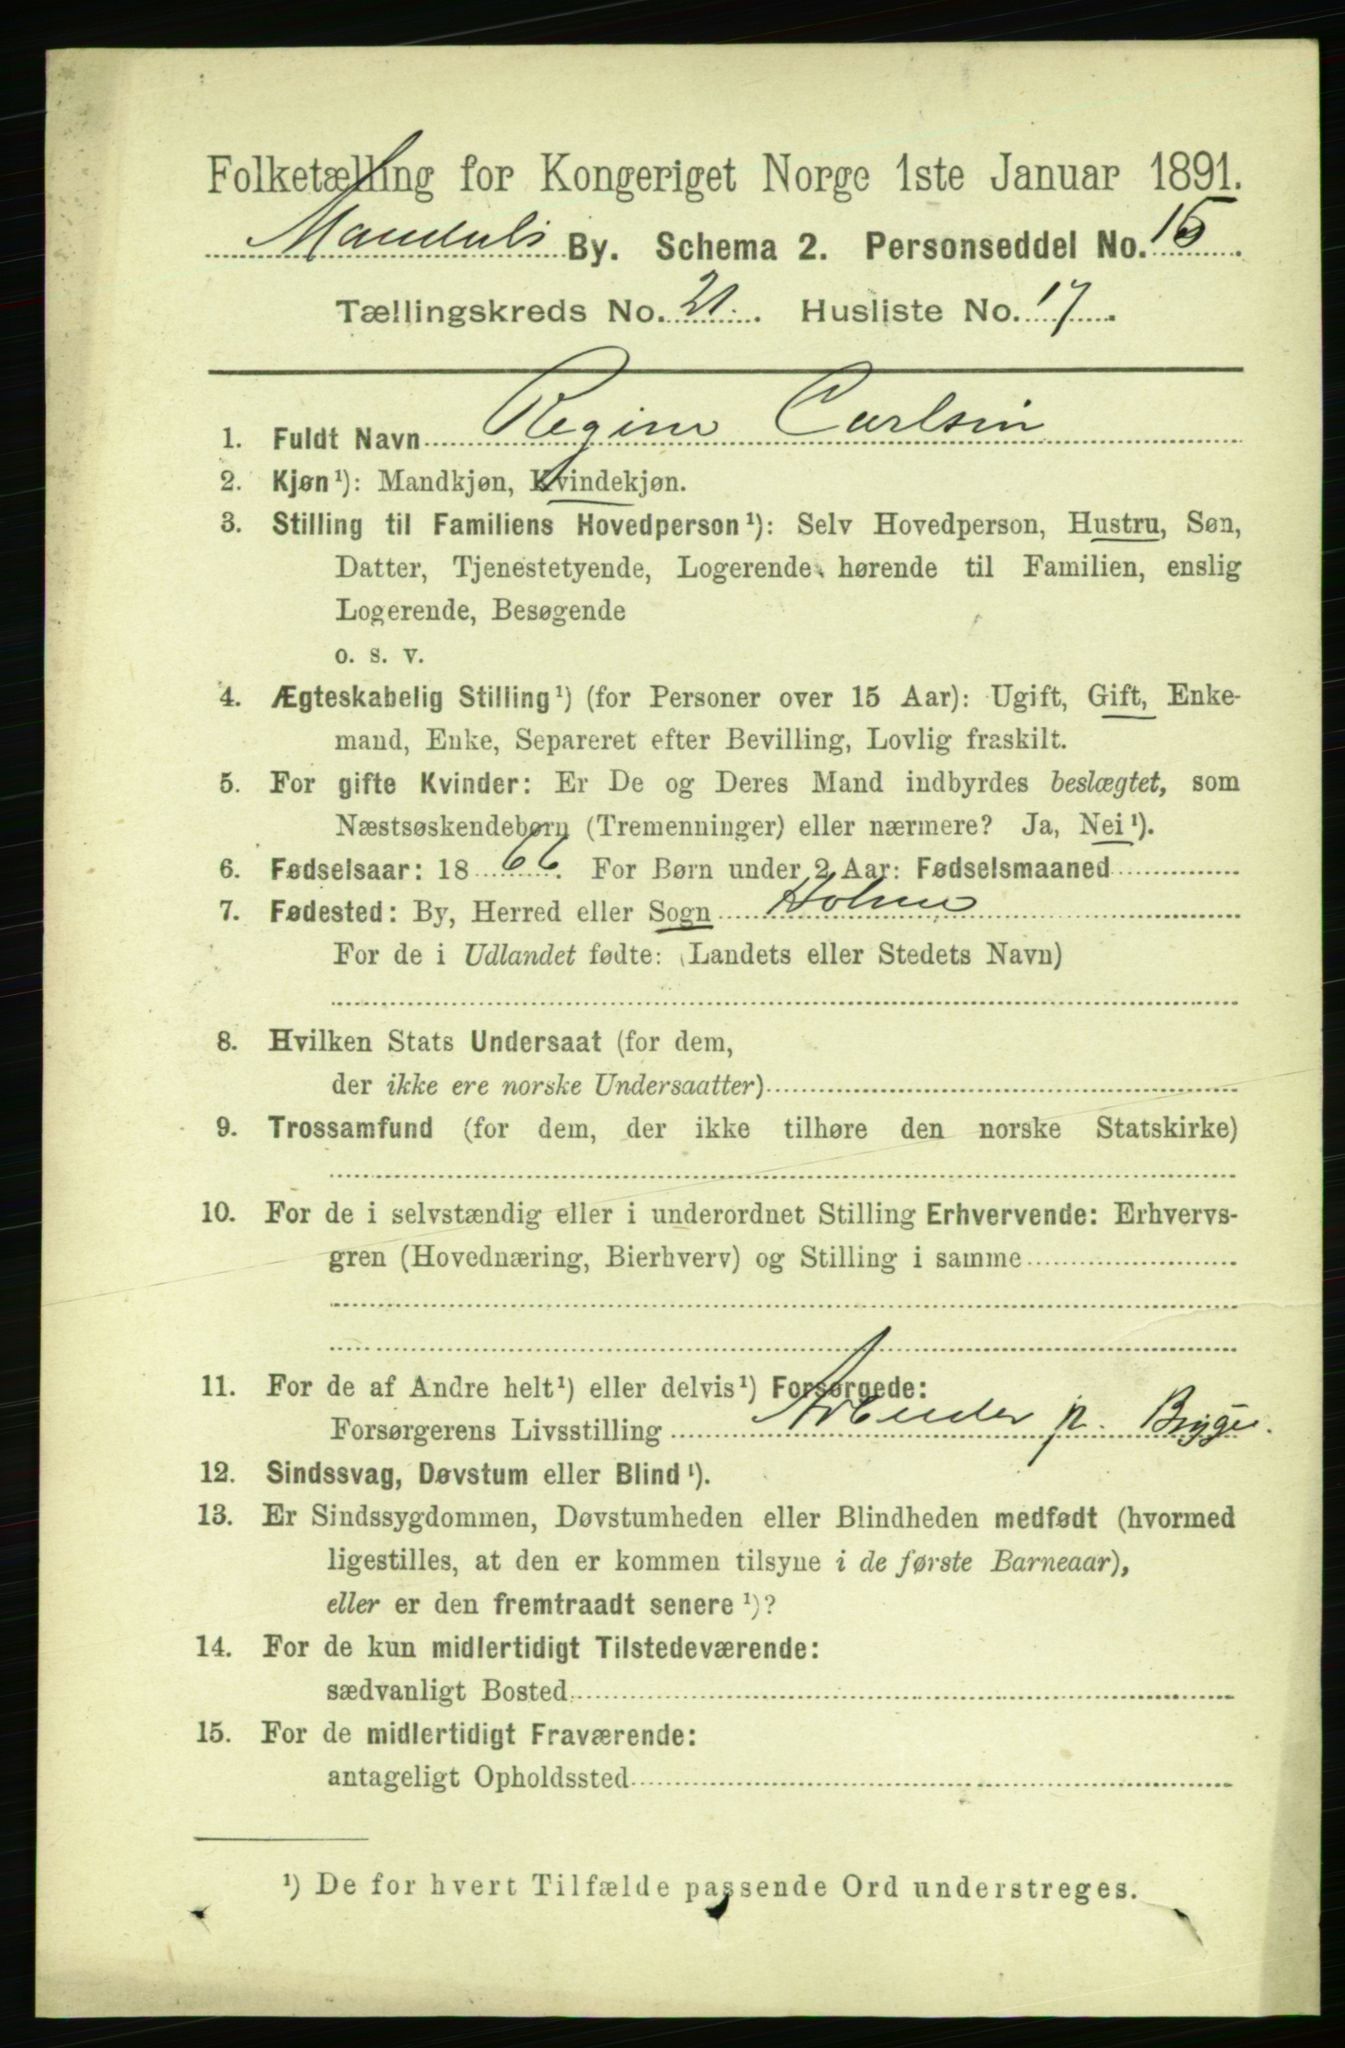 Folketælling for Kongeriget Norge 1ste Januar 1891.
Mandals By. Schema 2. Personseddel No. 15.
Tællingskreds No. 21. Husliste No. 17.
1. Fuldt Navn Regine Carlsen
2. Kjøn¹): Mandkjøn, Kvindekjøn.
3. Stilling til Familiens Hovedperson¹): Selv Hovedperson, Hustru, Søn,
Datter, Tjenestetyende, Logerende hørende til Familien, enslig
Logerende, Besøgende
o. s. v.
4. Ægteskabelig Stilling¹) (for Personer over 15 Aar): Ugift, Gift, Enke-
mand, Enke, Separeret efter Bevilling, Lovlig fraskilt.
5. For gifte Kvinder: Er De og Deres Mand indbyrdes beslægtet, som
Næstsøskendebørn (Tremenninger) eller nærmere? Ja, Nei¹).
6. Fødselsaar: 1866. For Børn under 2 Aar: Fødselsmaaned
7. Fødested: By, Herred eller Sogn Holme
For de i Udlandet fødte: (Landets eller Stedets Navn)
8. Hvilken Stats Undersaat (for dem,
der ikke ere norske Undersaatter)
9. Trossamfund (for dem, der ikke tilhøre den norske Statskirke)
10. For de i selvstændig eller i underordnet Stilling Erhvervende: Erhvervs-
gren (Hovednæring, Bierhverv) og Stilling i samme
11. For de af Andre helt¹) eller delvis¹) Forsørgede:
Forsørgerens Livsstilling Arbeider p. Brygge.
12. Sindssvag, Døvstum eller Blind¹).
13. Er Sindssygdommen, Døvstumheden eller Blindheden medfødt (hvormed
ligestilles, at den er kommen tilsyne i de første Barneaar),
eller er den fremtraadt senere¹)?
14. For de kun midlertidigt Tilstedeværende:
sædvanligt Bosted
15. For de midlertidigt Fraværende:
antageligt Opholdssted
¹) De for hvert Tilfælde passende Ord understreges.